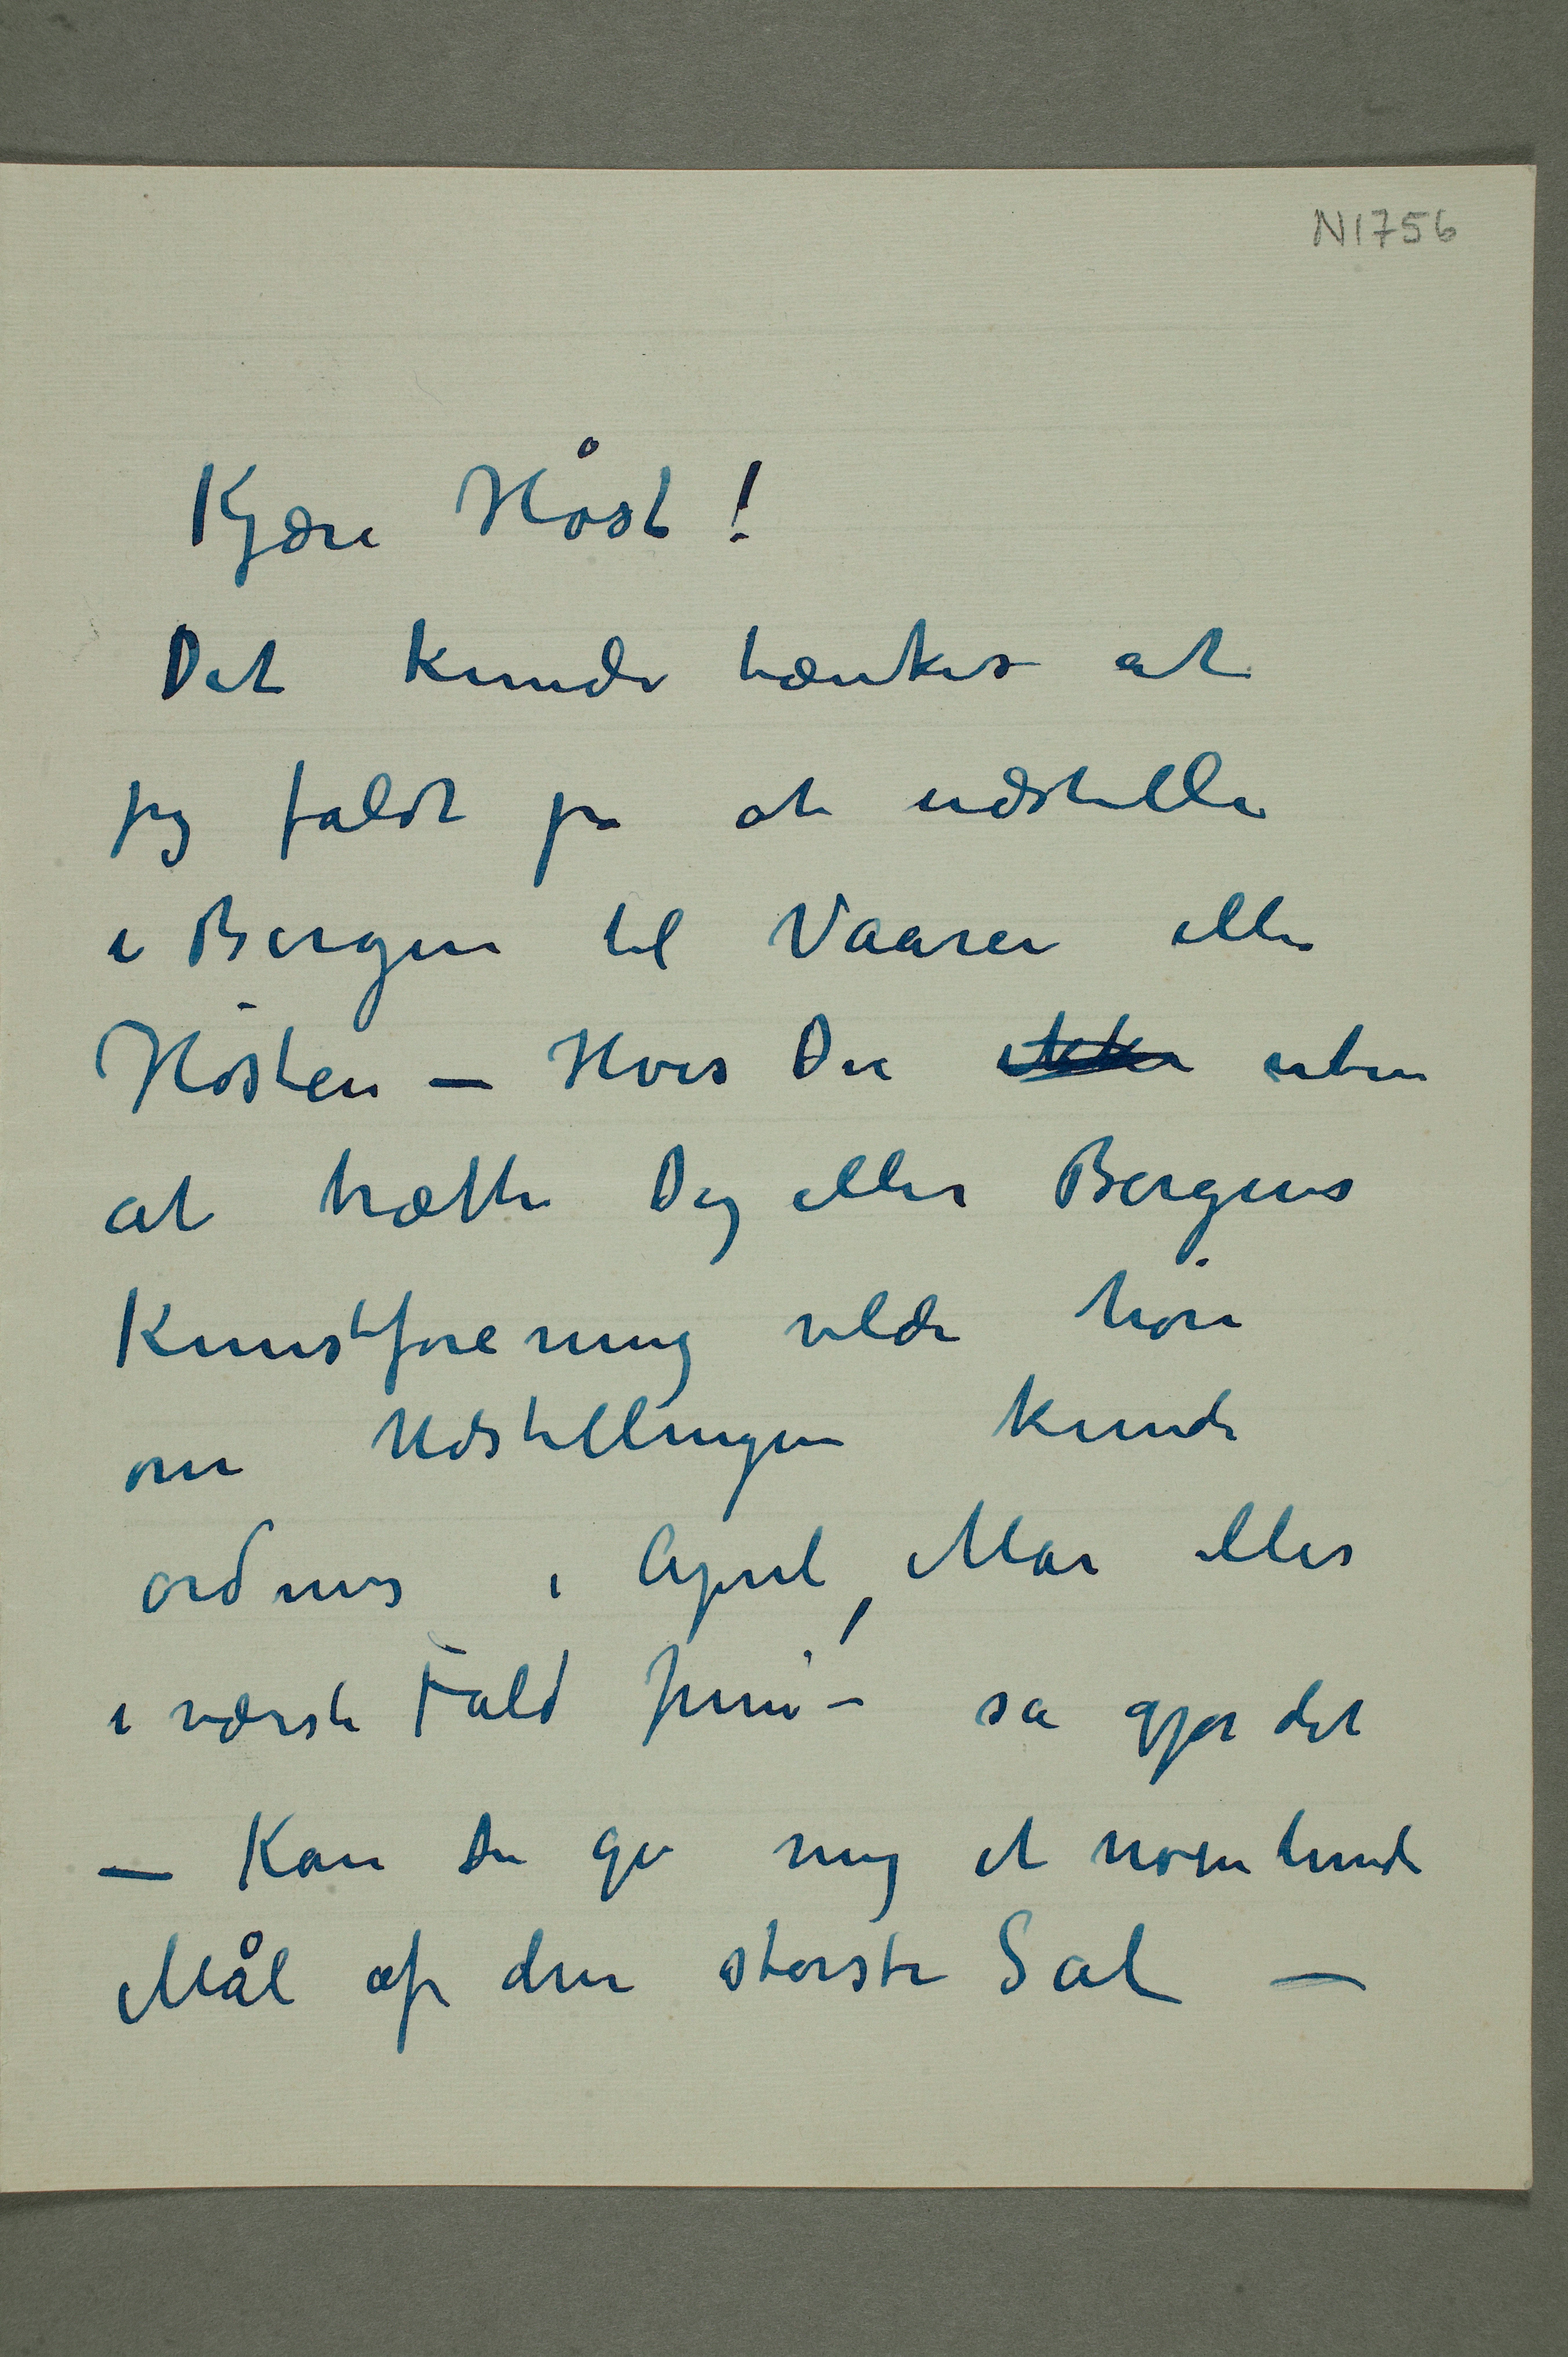 N1756
Kjære Høst!
Det kunde tænkes at
jeg faldt på at udstille
i Bergen til Vaaren eller
Høsten – Hvis Du ikke uten
at trætte Dig eller Bergens
Kunstforening vilde høre
om Udstillingen kunde
ordnes i April, Mai eller
i værste Fald Juni – så gjør det
– Kan Du gi mig et nogenlunde
Mål af den største Sal –